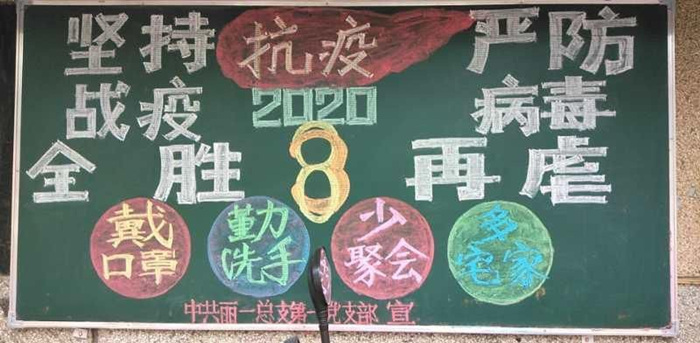 坚持 抗疫 严防
战疫 2020 病毒
全胜 8 再虐
戴口罩
勤力洗手
少聚会
多宅家
中共丽一总支第一党支部 宣